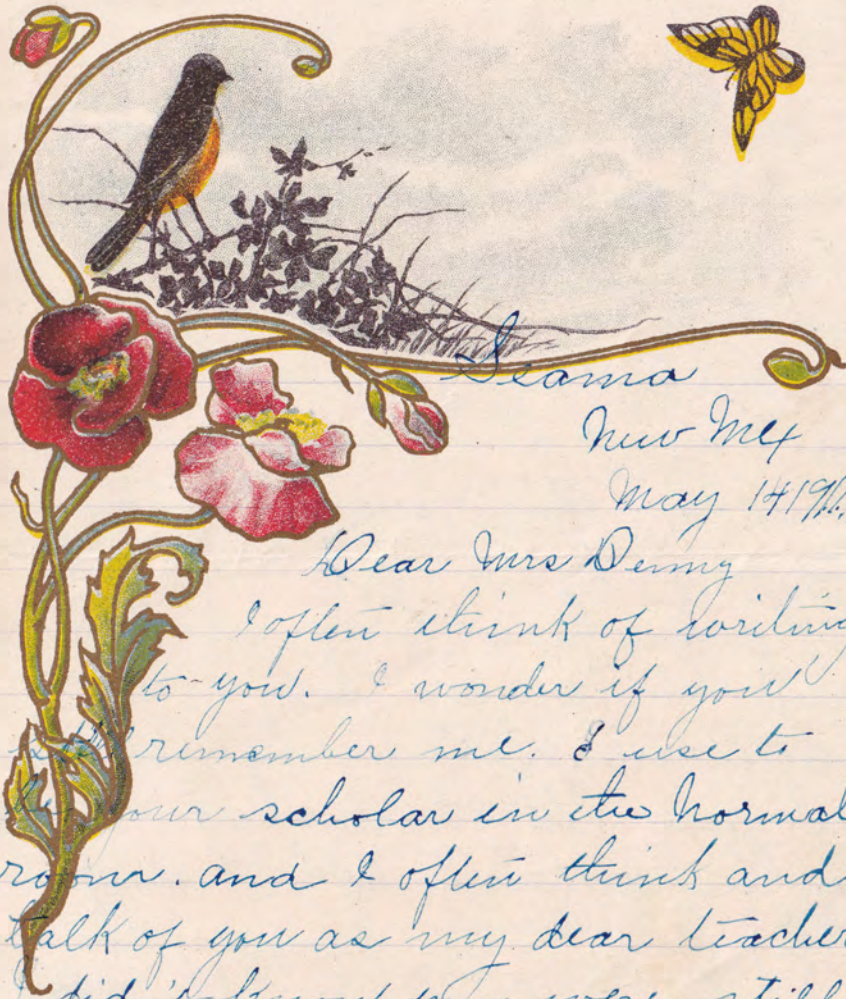 Seama
New Mex
May 14 191
Dear Mrs Denny
I often think of writing
to you. I wonder if you
still remember me. I use to
be your scholar in the Normal
room. and I often think and
talk of you as my dear teacher
I did'nt know you were still